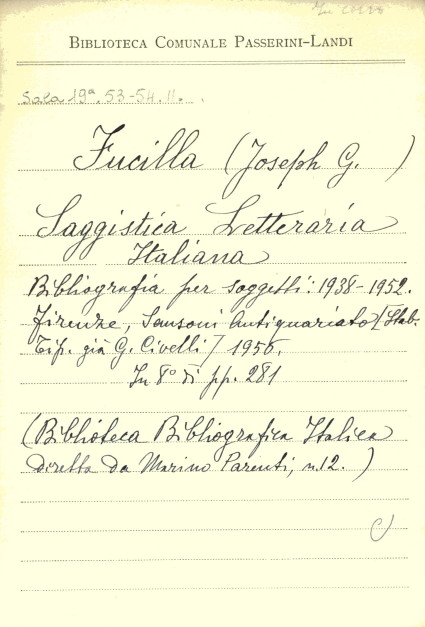 In corso
BIBLIOTECA COMUNALE PASSERINI-LANDI
Sala 19ª. 53-54. II.
Fucilla (Joseph G. )
Saggistica Letteraria
Italiana
Bibliografia per soggetti: 1938-1952.
Firenze, Sansoni Antiquariato (Stab.
Tip. già G. Civelli) 1956.
In 8° di pp. 281
(Biblioteca Bibliografica Italica
diretta da Marino Parenti, n. 12. )